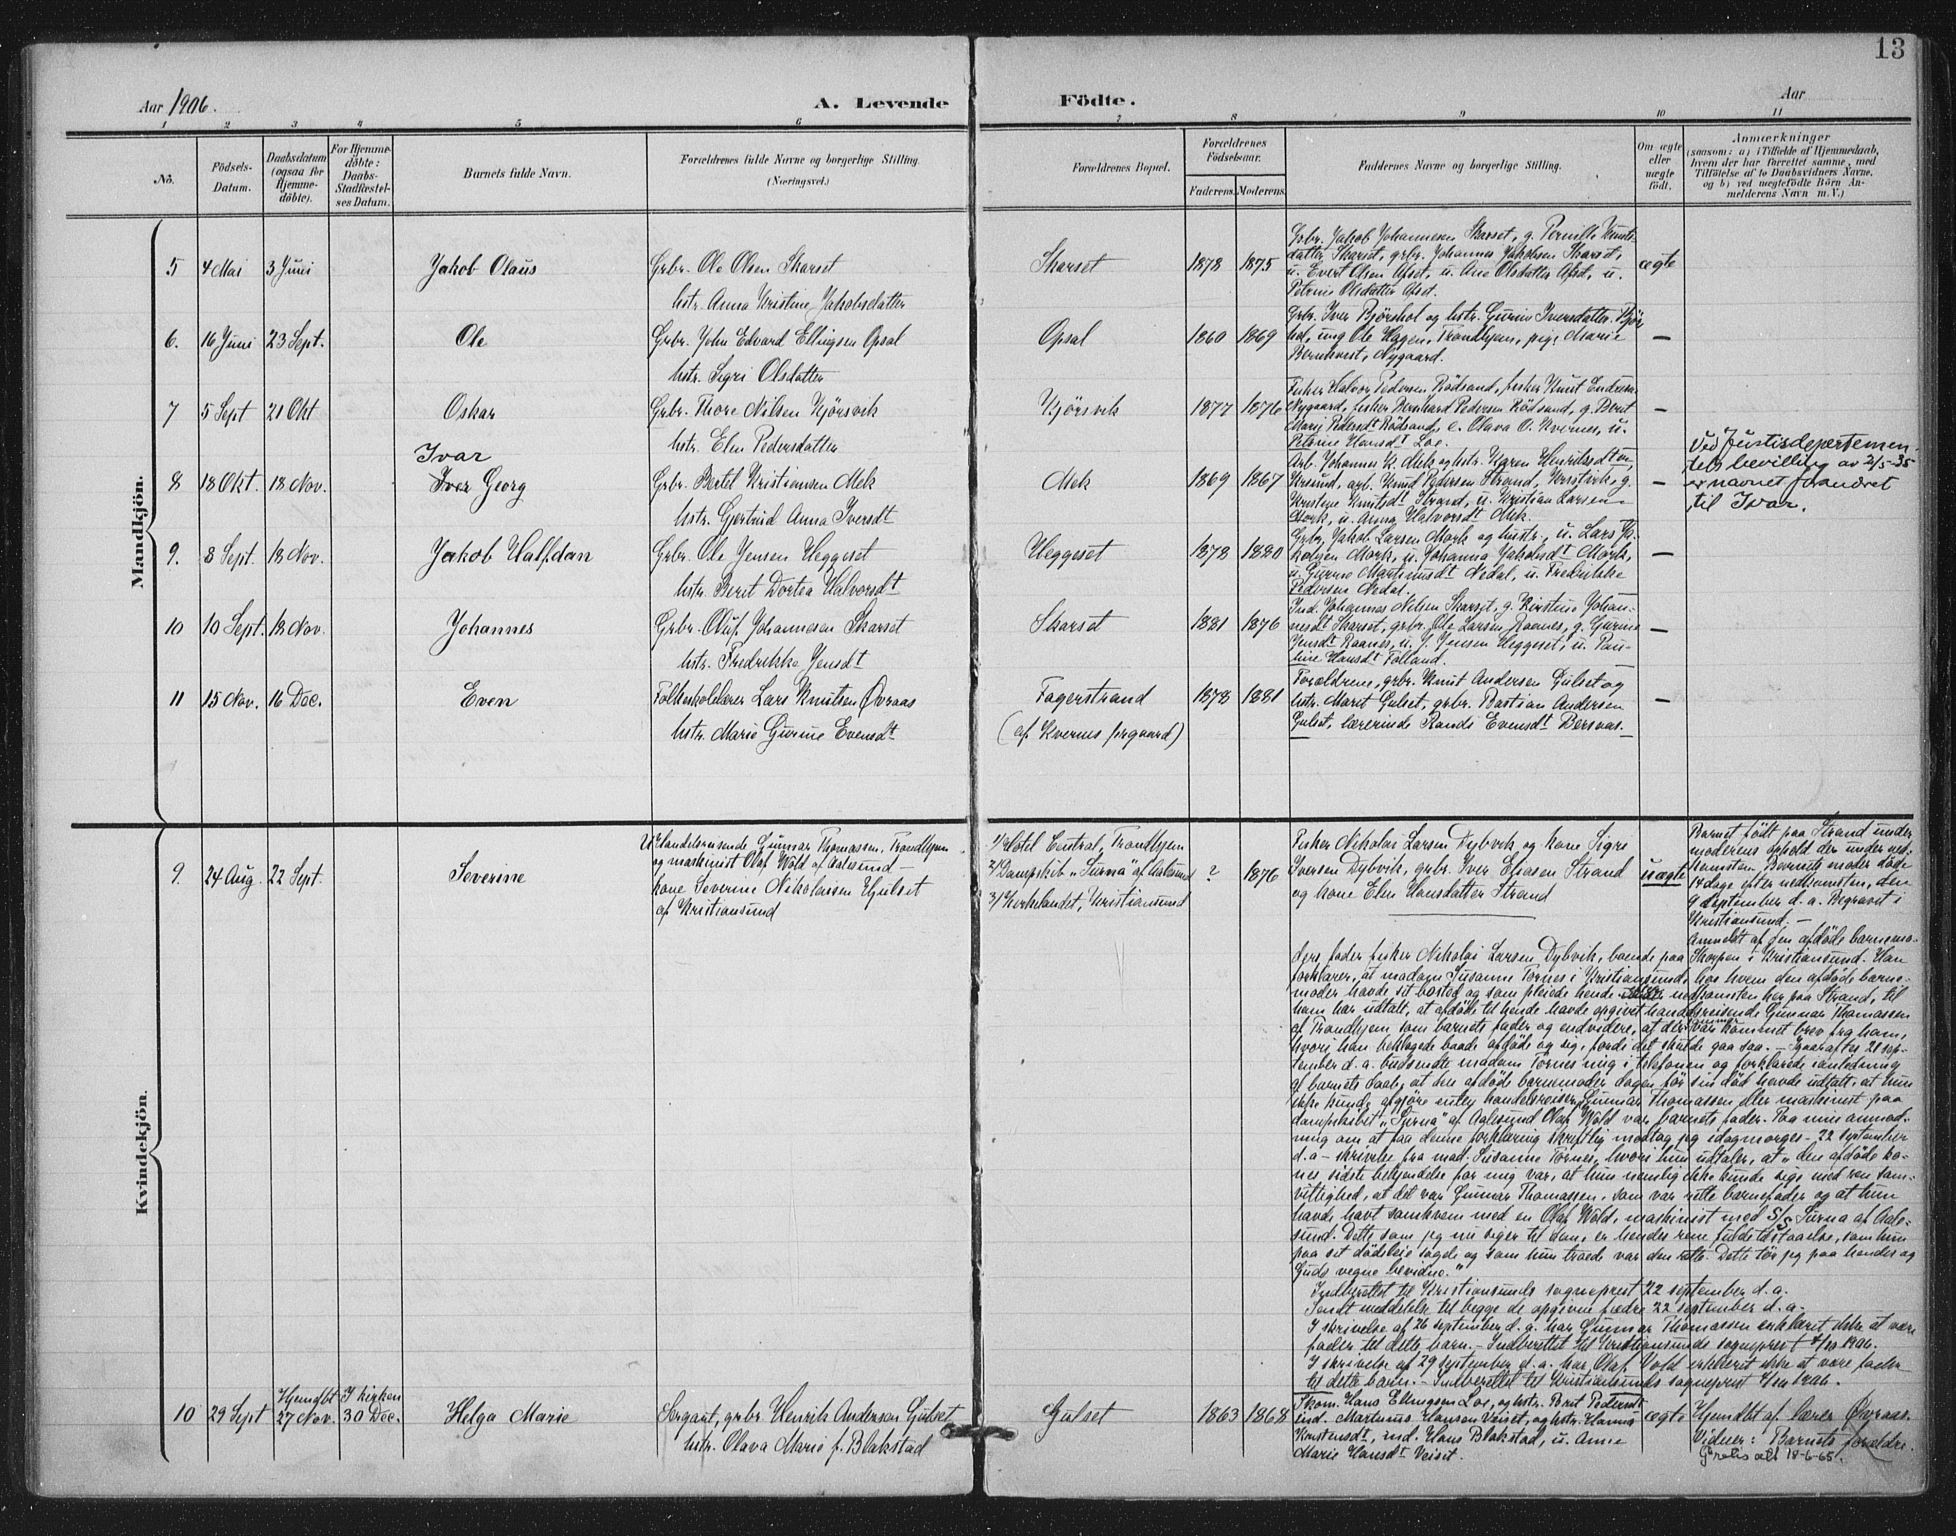 13
Aar 1906.
A. Levende
Födte.
Aar
1 2 3 4 5 6 7 8 9 10 11
No.
Födsels-
Datum.
Daabsdatum
(ogsaa for
Hjemme-
döbte).
For Hjemme-
döbte:
Daabs-
Stadfæstel-
ses Datum.
Barnets fulde Navn.
Forældrenes fulde Navne og borgerlige Stilling.
(Næringsvei.)
Forældrenes Bopæl.
Forældrenes
Födselsaar.
Faderens.
Moderens.
Faddernes Navne og borgerlige Stilling.
Om ægte
eller
uægte
födt.
Anmærkninger
(saasom: a) i Tilfælde af Hjemmedaab,
hvem der har forrettet samme, med
Tilföielse af to Daabsvidners Navne,
og b) ved uægtefödte Börn An-
melderens Navn m. V.)
Mandkjön.
5 4 Mai 3 Juni Jakob Olaus
Grbr. Ole Olsen Skarset
hstr. Anna Kristine Jakobsdatter
Skarset 1878 1875
Grbr. Jakob Johannesen Skarset, g. Pernille Knuts-
datter Skarset, grbr. Johannes Jakobsen Skarset,
u. Evert Olsen Øfset, u. Ane Olsdatter Øfset, u.
Petrine Olsdatter Øfset.
ægte
6. 16 Juni 23 Sept. Ole
Grbr. John Edvard Ellingsen Opsal
hstr. Sigri Olsdatter
Opsal 1860 1869
Grbr. Iver Bjørshol og hstr. Gurine Iversdatter Bjørs-
hol, ung. Ole Hagen, Trondhjem, pige Marie
Bernhoist, Nygaard.
—
7 5 Sept 21 Okt Oskar
Grbr. Thore Nilsen Kjörsvik
hstr. Elen Pedersdatter
Kjörsvik 1877 1876
Fisker Halvor Pedersen Rödsand, fisker Knut Endresen
Nygaard, fisker Bernhard Pedersen Rödsand, g. Berit
Marie Pedersdt Rödsand, e. Olava O. Kvernes, u.
Petrine Hansdt Loe.
—
8 18 Okt. 18 Nov.
Ivar
Iver Georg
Grbr. Bertel Kristiansen Mek
hstr. Gjertrud Anna Iversdt
Mek 1869 1867
Arb. Johannes K. Mek og hstr. Karen Henriksdt
Krsund, arb. Knut Pedersen Strand, Kristvik, g.
Kristine Knutsdt Strand, u. Kristian Larsen
Mork, u. Anna Halvorsdt Mek.
—
Ved Justisdepartemen-
tets bevilling av 2/5-35
er navnet forandret
til Ivar.
9. 8 Sept. 18 Nov. Jakob Halfdan
Grbr. Ole Jensen Heggeset
hstr. Berit Dortea Halvorsdt
Heggeset 1878 1880
Grbr. Jakob Larsen Mork og hustr., u. Lars Ja-
kobsen Mork, u. Johanna Jakobsdt Mork,
u. Gurine Martinusdt Nedal, u. Fredrikke
Pedersen Nedal.
—
10 10 Sept. 18 Nov. Johannes
Grbr. Oluf Johannesen Skarset
hstr. Fredrikke Jensdt
Skarset 1881 1876
Ind. Johannes Nilsen Skarset, g. Kirstine Johan-
nesdt Skarset, grbr. Ole Larsen Raanes, g. Gurine
Jensdt Raanes, u. J. Jensen Heggeset, u. Pau-
line Hansdt Folland.
—
11 15 Nov. 16 Dec. Even
Folkeskolelærer Lars Knutsen Øvraas
hstr. Marie Gurine Evensdt
Fagerstrand
(af Kvernes prgaard)
1878 1881
Forældrene, grbr. Knut Andersen Gulset og
hstr. Marit Gulset, grbr. Bastian Andersen
Gulset, lærerinde Randi Evensdt Bersaas.
—
Kvindekjön.
9. 24 Aug. 22 Sept Severine
1/ Handelsreisende Gunnar Thomassen, Trondhjem
og maskinist Olaf Wold af Aalesund
kone Severine Nikolaisen Gjulset
af Kristiansund
1/ Hotel Central, Trondhjem
2/ Dampskib "Surna" af Aalesund
3/ Kirkelandet, Kristiansund
? 1876
Fisker Nikolai Larsen Dybvik og kone Sigri
Iversen Dybvik, grbr. Iver Eliasen Strand
og kone Elen Hansdatter Strand
uægte
Barnet födt paa Strand under
moderens ophold der under ned-
komsten. Barnets moder döde
14 dage efter nedkomsten, den
9 september d. a. Begravet i
Kristiansund. —
Anmeldt af den afdöde barnemo-
ders fader fisker Nikolai Larsen Dybvik, boende paa Skorpen i Kristiansund. Han
forklarer, at madam Susanne Tornes i Kristiansund, hos hvem den afdöde barne-
moder havde sit bosted og som pleiede hende under nedkomsten her paa Strand, til
ham har udtalt, at afdöde til hende havde opgivet handelsreisende Gunnar Thomassen
af Trondhjem som barnets fader og endvidere, at der var kommet brev fra ham,
hvori han beklagede baade afdöde og sig, fordi det skulde gaa saa. — Igaaraftes 21 sep-
tember d. a. tilsendte madam Tornes mig i telefonen og forklarede i anledning
af barnets daab, at den afdöde barnemoder dagen för sin död havde udtalt, at hun
ikke kunde afgjöre enten handelsreisende Gunnar Thomassen eller maskinist paa
dampskibet "Surna" af Aalesund Olaf Wold var barnets fader. Paa min anmod-
ning om at faa denne forklaring skriftlig modtog jeg idagmorges — 22 september
d. a — skrivelse fra mad. Susanne Tornes, hvori hun udtaler, at "den afdöde ko-
nes sidste bekjendelse for mig var, at hun nemlig ikke kunde sige med ren sam-
vittighed, at det var Gunnar Thomassen, som var rette barnefader og at hun
havde havt samkvem med en Olaf Wold, maskinist med S/S Surna af Aale-
sund. Dette som jeg nu siger til Dem, er hendes rene fulde tilstaaelse, som hun
paa sit dödsleie sagde og som hun troede var den rette. Dette tör jeg paa hendes og
Guds vegne bevidne."
Indberettet til Kristiansunds sogneprest 22 september d. a.
Sendt meddelelse til begge de opgivne fædre 22 september d. a.
I skrivelse af 26 september d. a. har Gunnar Thomassen erklæret ikke at være
fader til dette barn. — Indberettet til Kristiansunds sogneprest 4/10 1906.
I skrivelse af 29 september d. a. har Olaf Vold erklæret ikke at være fader
til dette barn. — Indberettet til Kristiansunds sogneprest 4/10 1906.
10 29 Sept
Hjemdbt
27 Nov.
I kirken
30 Dec.
Helga Marie
Sergant, grbr. Henrik Anderson Gulset
hstr. Olava Marie f. Blakstad
Gulset 1863 1868
Skom. Hans Ellingsen Loe, og hstr. Berit Pedersdt
ind. Martinus Hansen Veiset, og hstr. Hanna
Kristensdt, ind. Hans Blakstad, u. Anne
Marie Hansdt Veiset.
ægte
Hjemdbt af lærer Øvraas.
Vidner: Barnets forældre.
Gratis att 18-6-65.